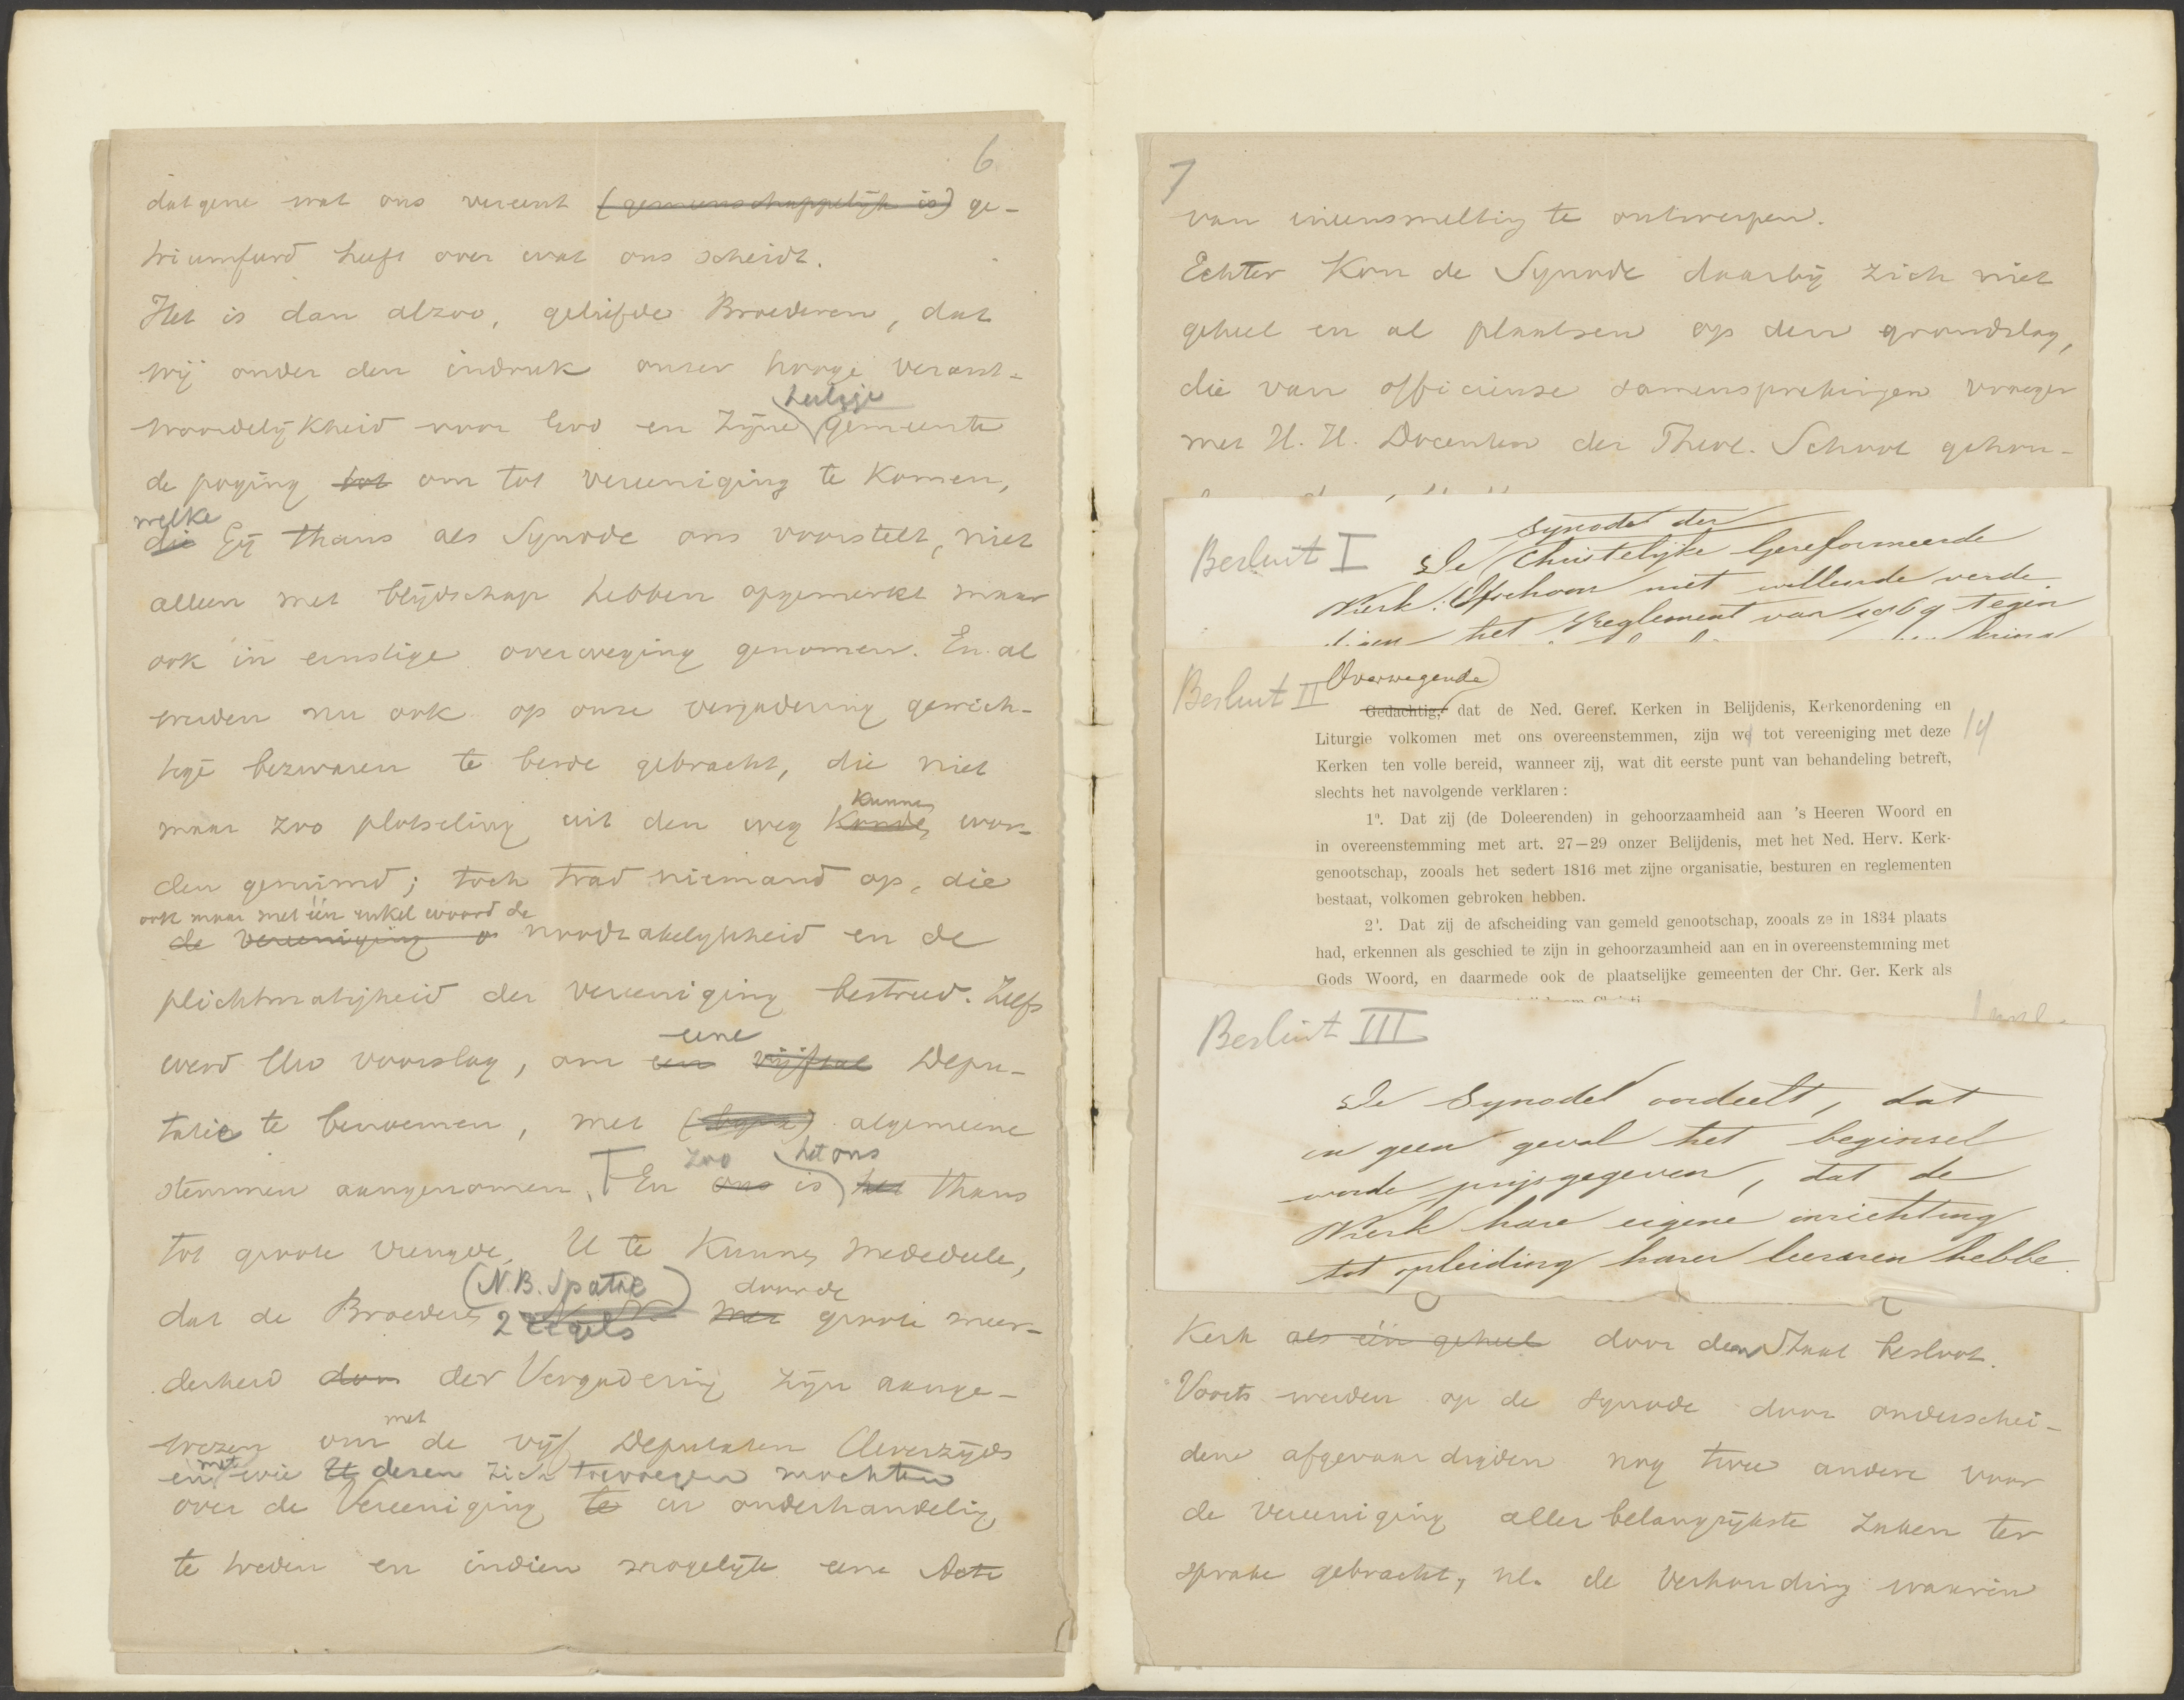 6
datgene wat ons vereent (gemeenschappelijk is) ge-
triumfeerd heeft over wat ons scheidt.
Het is dan alzoo, geliefde Broederen, dat
wij onder den indruk onzer hooge verant-
heilige
woordelijkheid voor God en Zijne gemeente
de poging tot om tot vereeniging te komen,
welke
die Gij thans als Synode ons voorstelt, niet
alleen met blijdschap hebben opgemerkt maar
ook in ernstige overweging genomen. En al
werden nu ook op onze vergadering gewich-
tige bezwaren te berde gebracht, die niet
kunnen
maar zoo plotseling uit den weg konden wor-
den geruimd; toch trad niemand op, die
ook maar met één enkel woord de
de vereeniging o noodzakelijkheid en de
plichtmatigheid der vereeniging bestreed. Zelfs
eene
werd Uw voorslag, om een vijftal Depu-
tatie te benoemen, met algemeene
zoo het ons
stemmen aangenomen. En ons is het thans
tot groote vreugde U te kunnen mededeele,
(N.B. Spatie) door de
dat de Broeders 2 regels met groote meer-
derheid door der Vergadering zijn aange-
met
wezen om de vijf Deputaten Uwerzijds
met
en wie U dezen zich toevoegen mochten
over de Vereeniging te in onderhandeling
te treden en indien mogelijk eene Acte
7
van ineensmelting te ontwerpen.
Echter kon de Synode daarbij zich niet
geheel en al plaatsen op den grondslag,
die van officieuse samensprekingen vroeger
met H. H. Docenten der Theol. School gehou-
Besluit I
Synode der
De Christelijke Gereformeerde
Kerk: Ofschoon niet willende verde-
digen het Reglement van 1869 tegen
Besluit II
Overwegende
Gedachtig, dat de Ned. Geref. Kerken in Belijdenis, Kerkenordening en
Liturgie volkomen met ons overeenstemmen, zijn we tot vereeniging met deze 14
Kerken ten volle bereid, wanneer zij, wat dit eerste punt van behandeling betreft,
slechts het navolgende verklaren:
1°. Dat zij (de Doleerenden) in gehoorzaamheid aan 's Heeren Woord en
in overeenstemming met art. 27—29 onzer Belijdenis, met het Ned. Herv. Kerk-
genootschap, zooals het sedert 1816 met zijne organisatie, besturen en reglementen
bestaat, volkomen gebroken hebben.
2°. Dat zij de afscheiding van gemeld genootschap, zooals ze in 1834 plaats
had, erkennen als geschied te zijn in gehoorzaamheid aan en in overeenstemming met
Gods Woord, en daarmede ook de plaatselijke gemeenten der Chr. Ger. Kerk als
Besluit III
De Synode oordeelt, dat
in geen geval het beginsel
worde prijsgegeven, dat de
Kerk hare eigene inrichting
tot opleiding harer leeraren hebbe.
Kerk als één geheel door den Staat besloot.
Voorts werden op de Synode door onderschei-
dene afgevaardigden nog twee andere voor
de vereeniging aller belangrijkste zaken ter
sprake gebracht, nl. de verhouding waarin